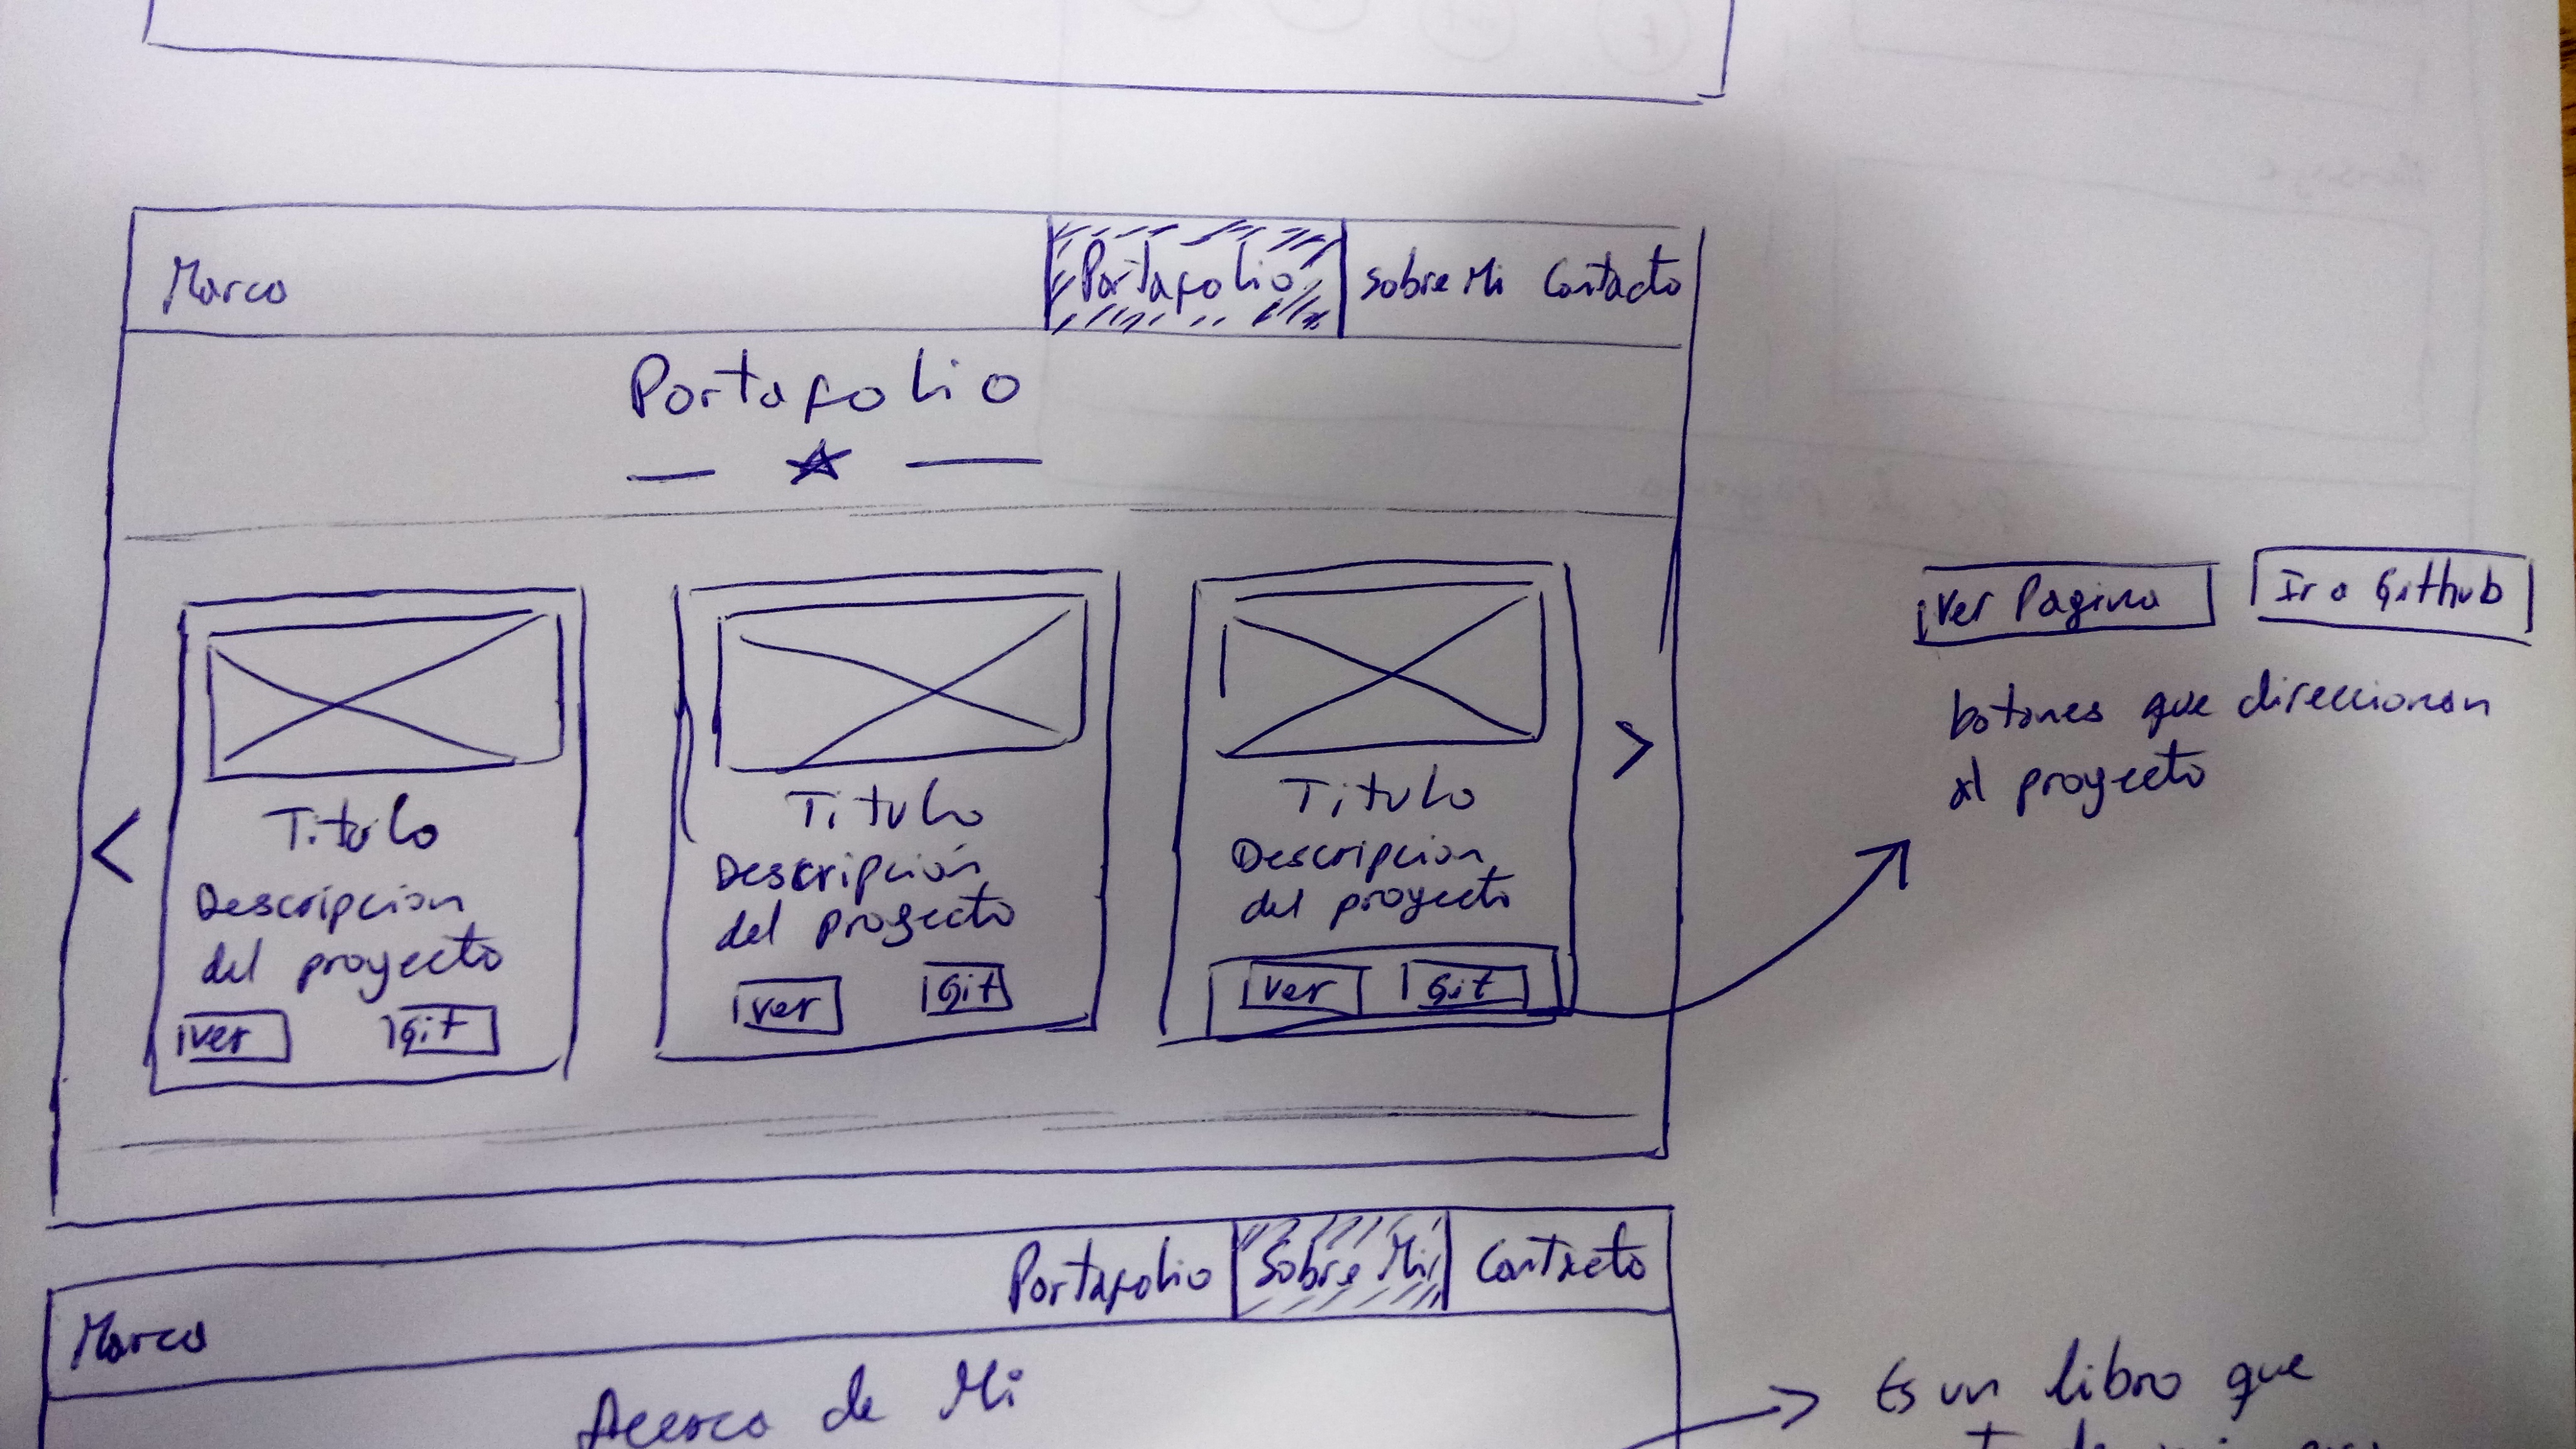 Marco Portafolio Sobre Mi Contacto
Portafolio
Titulo
Descripcion
del proyecto
Ver Git
Titulo
Descripción
del proyecto
Ver Git
Titulo
Descripcion
del proyecto
Ver Git
Ver Pagina Ir a Github
botones que direccionan
al proyecto
Marco Portafolio Sobre Mi Contacto
Acerca de Mi
Es un libro que